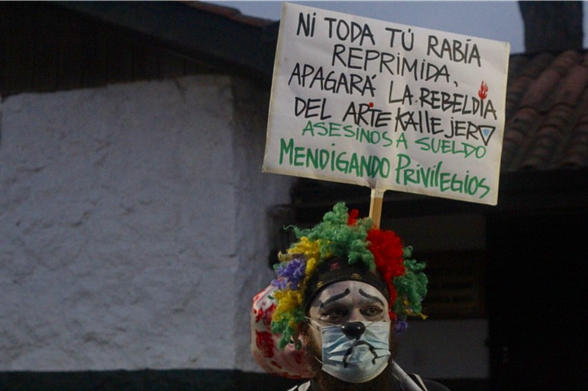 NI TODA TÚ RABÍA
REPRIMIDA,
APAGARÁ LA REBELDÍA
DEL ARTE KALLEJERO
ASESINOS A SUELDO
MENDIGANDO PRIVILEGIOS